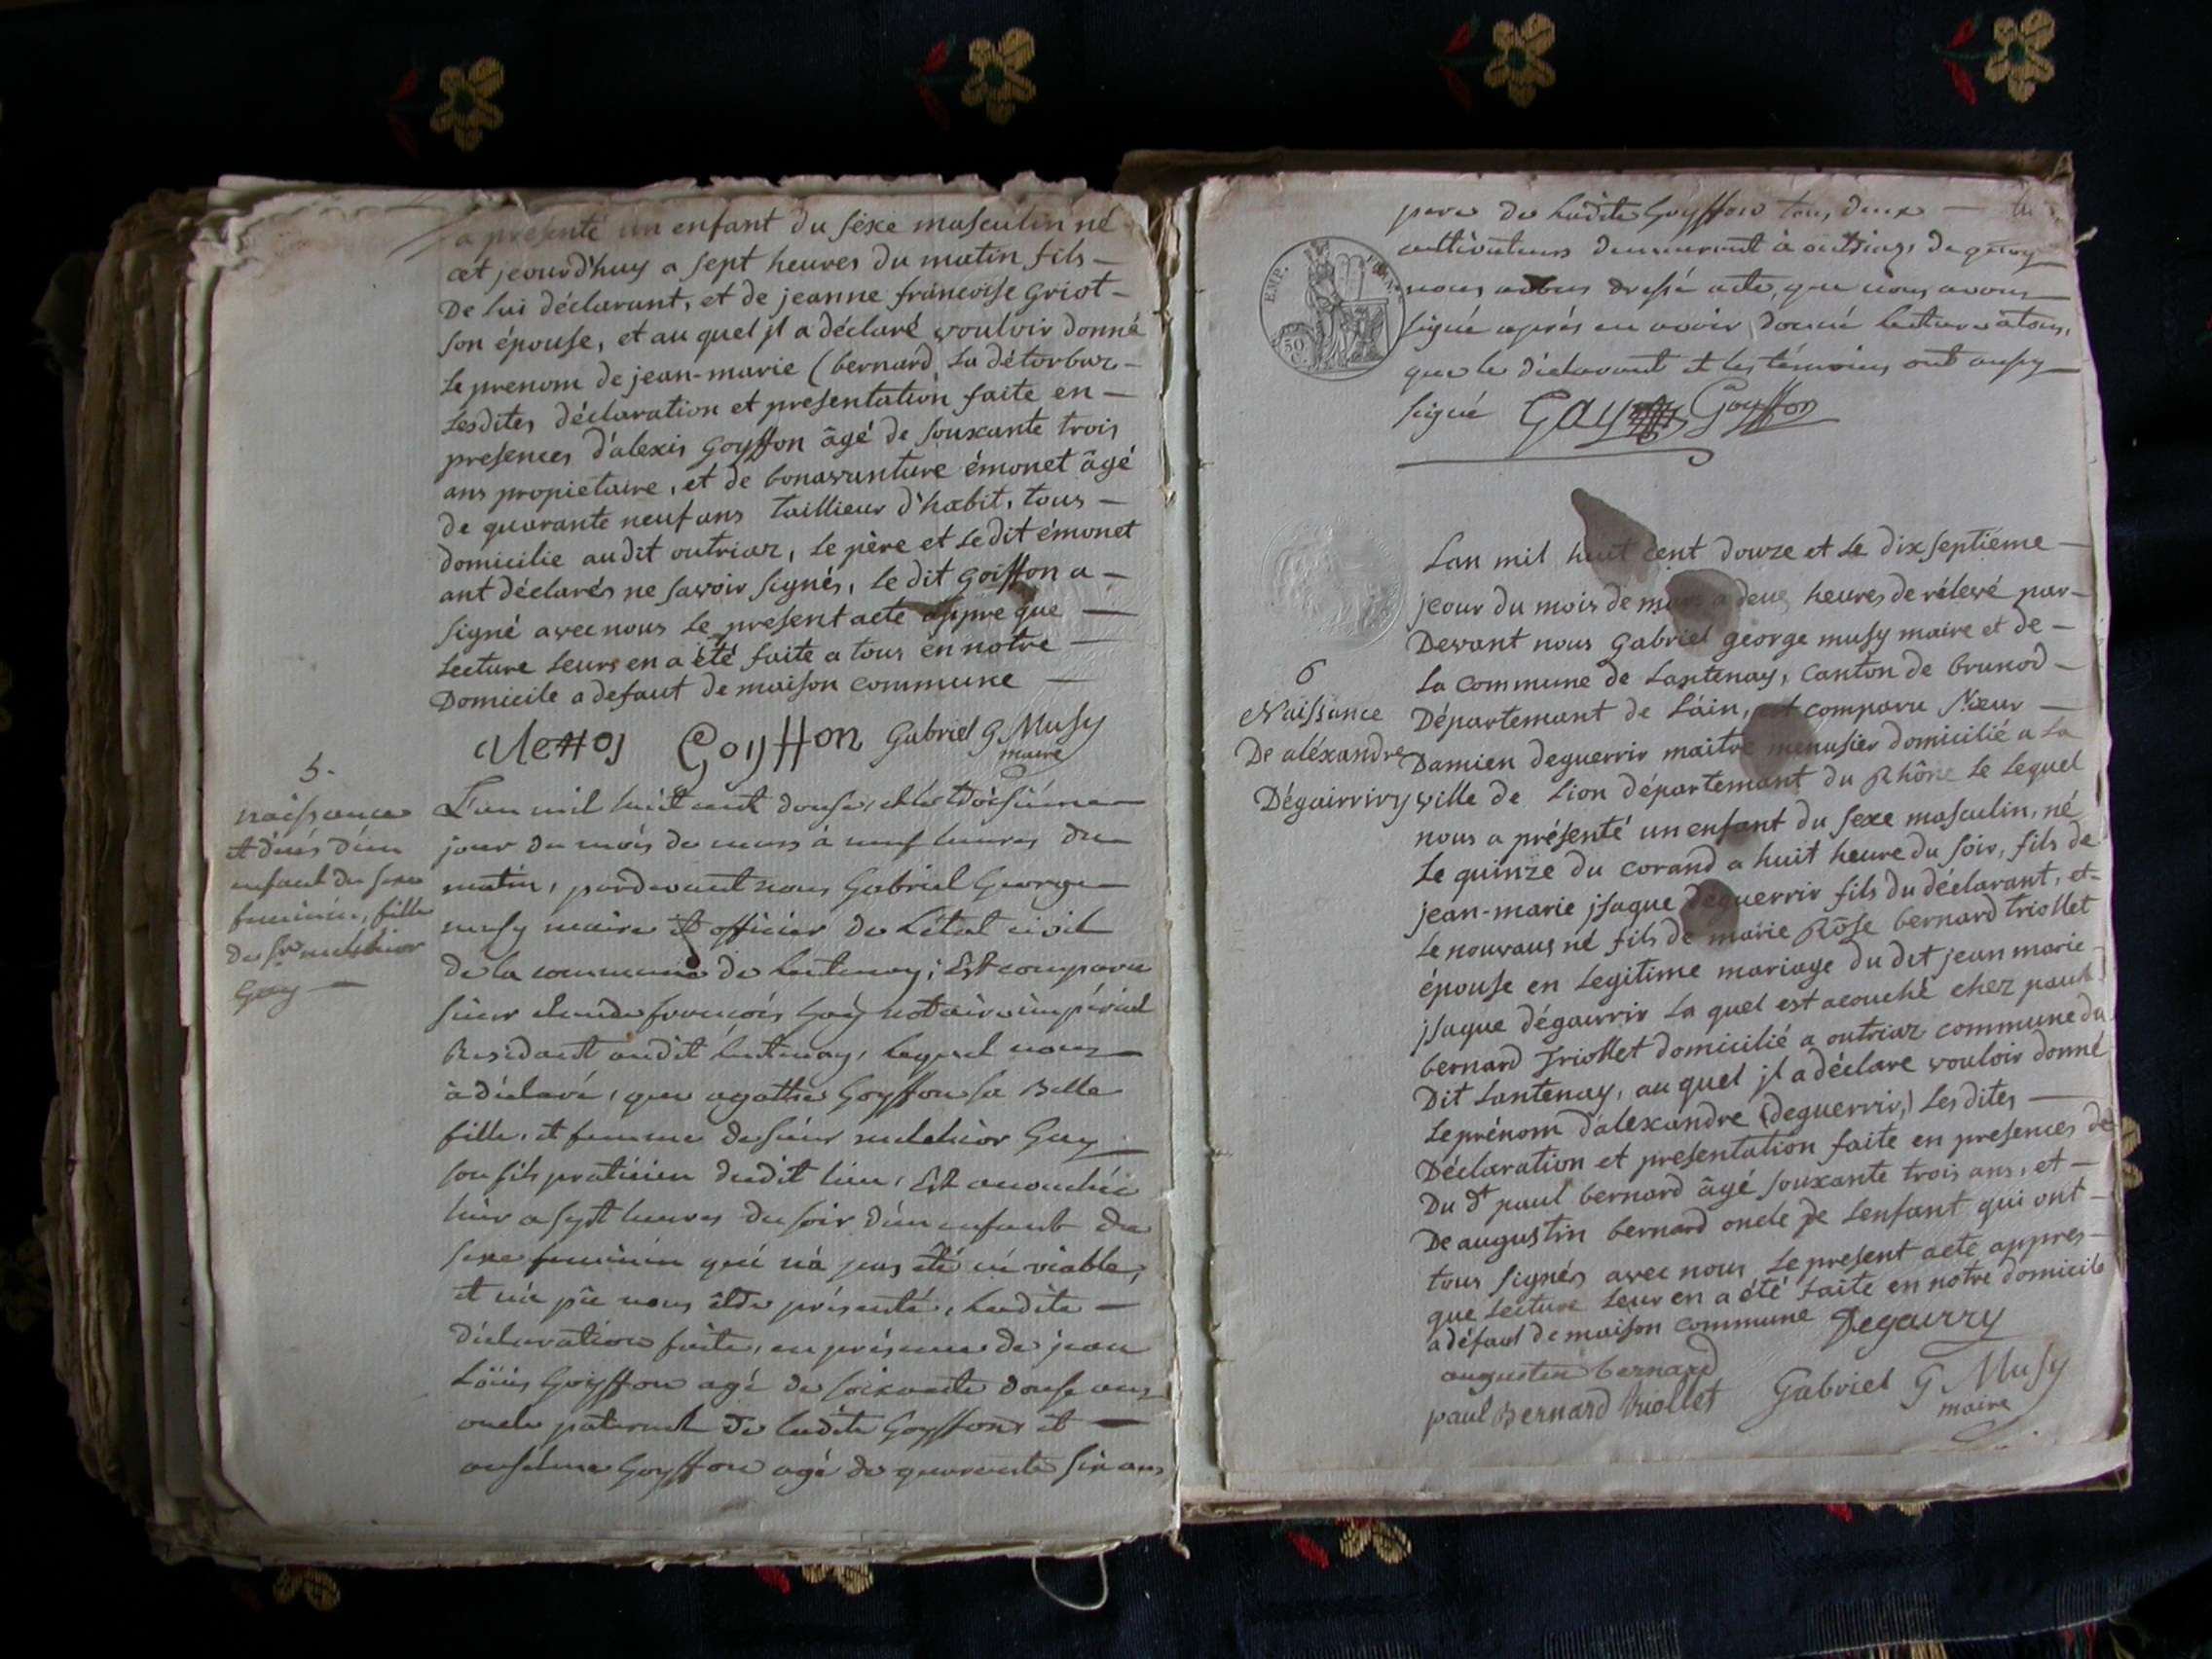 a présenté un enfant du sexe masculin né
cet jeourd'huy a sept heures du matin fils
De lui déclarant, et de jeanne francoise Griot
son épouse, et au quel jl a déclaré vouloir donné
Le prenom de jean-marie (bernard La détorbar
Lesdites déclaration et presentation faite en
presences d'alexis Goyffon âgé de souxante trois
ans propietaire, et de bonavanture émonet âgé
de quarante neuf ans taillieur d'habit, tous
domicilie au dit outriaz, Le père et Le dit émonet
ant déclarés ne savoir signés, Le dit Goiffon a
signé avec nous Le present acte appre que
Lecture Leurs en a été faite a tous en notre
Domicile a defaut de maison commune
Goyffon Gabriel G Musy
maire
5.
naissance
et décés d'un
enfant du sexe
feminin, fille
de sr melchior
Guy
L'an mil huit cent douse, et le troisiéme
jour du mois de mars à neuf heures du
matin, pardevant nous Gabriel George
musy maire et officier de L'état civil
de la commune de Lentenay; Est comparu
sieur claude françois Guy notaire impérial
Residant audit Lentenay, Lequel nous
à déclaré, que agathe Goyffon sa Belle
fille, et femme de sieur melchior Guy
son fils praticien dudit lieu, Est accouchée
hier a sept heures du soir d'un enfant du
sexe feminin qui n'a pas été né viable,
et n'a pû nous être présenté, Ladite
déclaration faite, en présence de jean
Löüis Goyffon agé de soixante douse ans
oncle paternel de Ladite Goyffon et
anselme Goyffon agé de quarante six ans
pere de Ladite Goyffon tous deux
cultivateurs demeurant à outriaz, de quoy
nous avons dressé acte, que nous avons
signé aprés en avoir donné Lecture a tous,
que le déclarant et les témoins ont aussy
signé Guy Goyffon
EMP.
50
C.
6
Naissance
De aléxandre
Dégairrivry
Lan mil huit cent douze et Le dix septiéme
jeour du mois de mars a deux heures de rélevé par
Devant nous Gabriel george musy maire et de
La commune de Lantenay, canton de brunod
Départemant de Láin, est comparu
Damien deguerrir maitre menusier domicilié a La
ville de Lion départemant du Rhône Le Lequel
nous a présenté un enfant du sexe masculin, né
Le quinze du corand a huit heure du soir, fils de
jean-marie jsaque deguerrir fils du déclarant, et
Le nouvaus né fils de marie Rôse bernard triollet
épouse en Legitime mariage du dit jean marie
jsaque dégaurrir La quel est acouché chez paul
bernard Triollet domicilié a outriaz commune du
Dit Lantenay, au quel jl a déclare vouloir donné
Le prénom d'alexandre (deguerrir,) Lesdites
Déclaration et presentation faite en presences de
Du dt paul bernard âgé souxante trois ans, et
De augustin bernard oncle de L'enfant qui ont
tous signés avec nous Le present acte appres
que Lecture Leur en a été faite en notre domicile
a défaut de maison commune Degaurry
augustin bernard
paul Bernard triollet Gabriel G Musy
maire